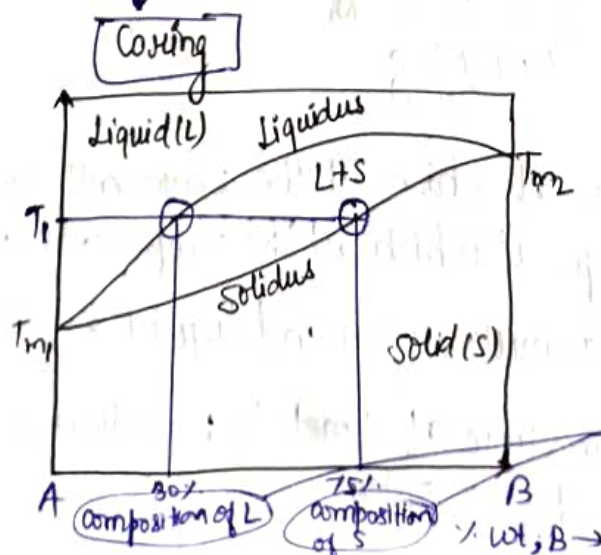 Coring
Liquid(L)
Liquidus
L+S
Tm2
T1
Solidus
Tm1
Solid(S)
A
30%
75%
B
composition of L
composition of S
% wt, B →